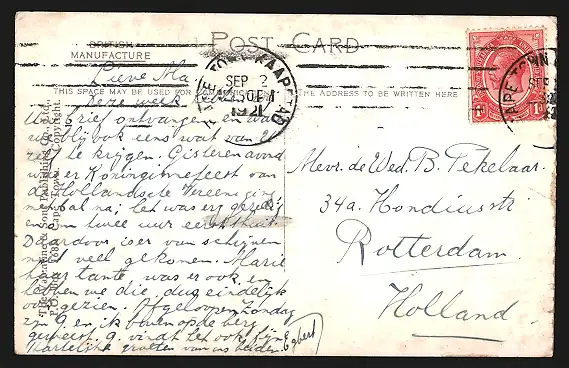 POST CARD
BRITISH
MANUFACTURE
THIS SPACE MAY BE USED FOR
THE ADDRESS TO BE WRITTEN HERE
KAAPSTAD
SEP 2
The Valentine & Sons Publishing Co. Ltd.
P.O. Box 1685, Cape Town. Copyright.
Lieve Ma
Deze week
Uw brief ontvangen
blij ook eens wat van
te krijgen. Gisteren avond
was er Koninginnefeest van
de Hollandsche Vereeniging
bal na; het was erg gezellig
en om twee uur eerst thuis.
Daardoor is er van schrijven
niet veel gekomen. Marie
haar tante was er ook en
hebben we die dus eindelijk
ook gezien. Afgeloopen Zondag
zijn G. en ik boven op de berg
geweest. G. vindt het ook fijn.
Hartelijke groeten van ons beiden. Egbert
Mevr. de Wed. B. Tekelaar.
34a. Hondiusstr
Rotterdam
Holland